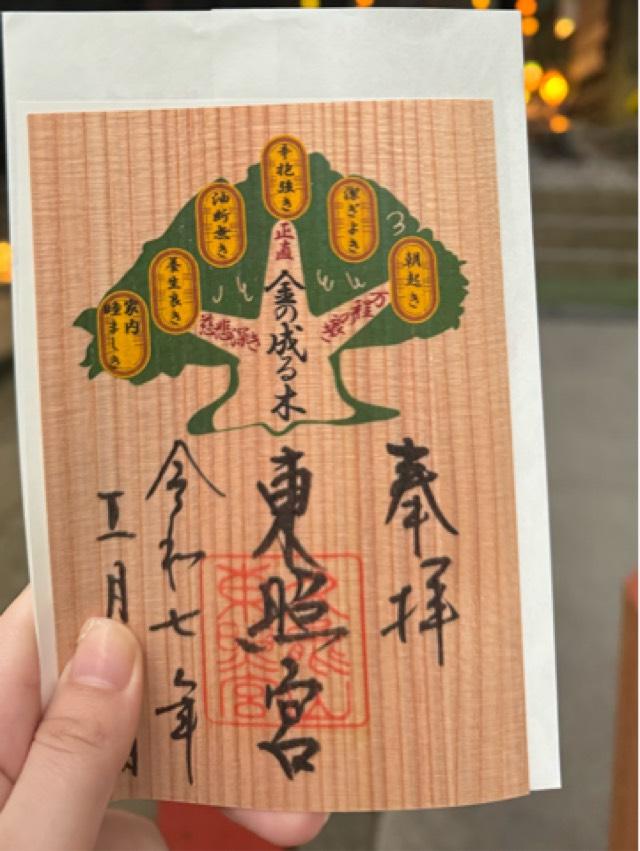 辛抱強き
油断無き
潔ぎよき
養生良き
朝起き
家内
睦ましき
正直
慈悲深き
万程よき
金の成る木
奉拝
東照宮
久能山
東照宮
令和七年
月